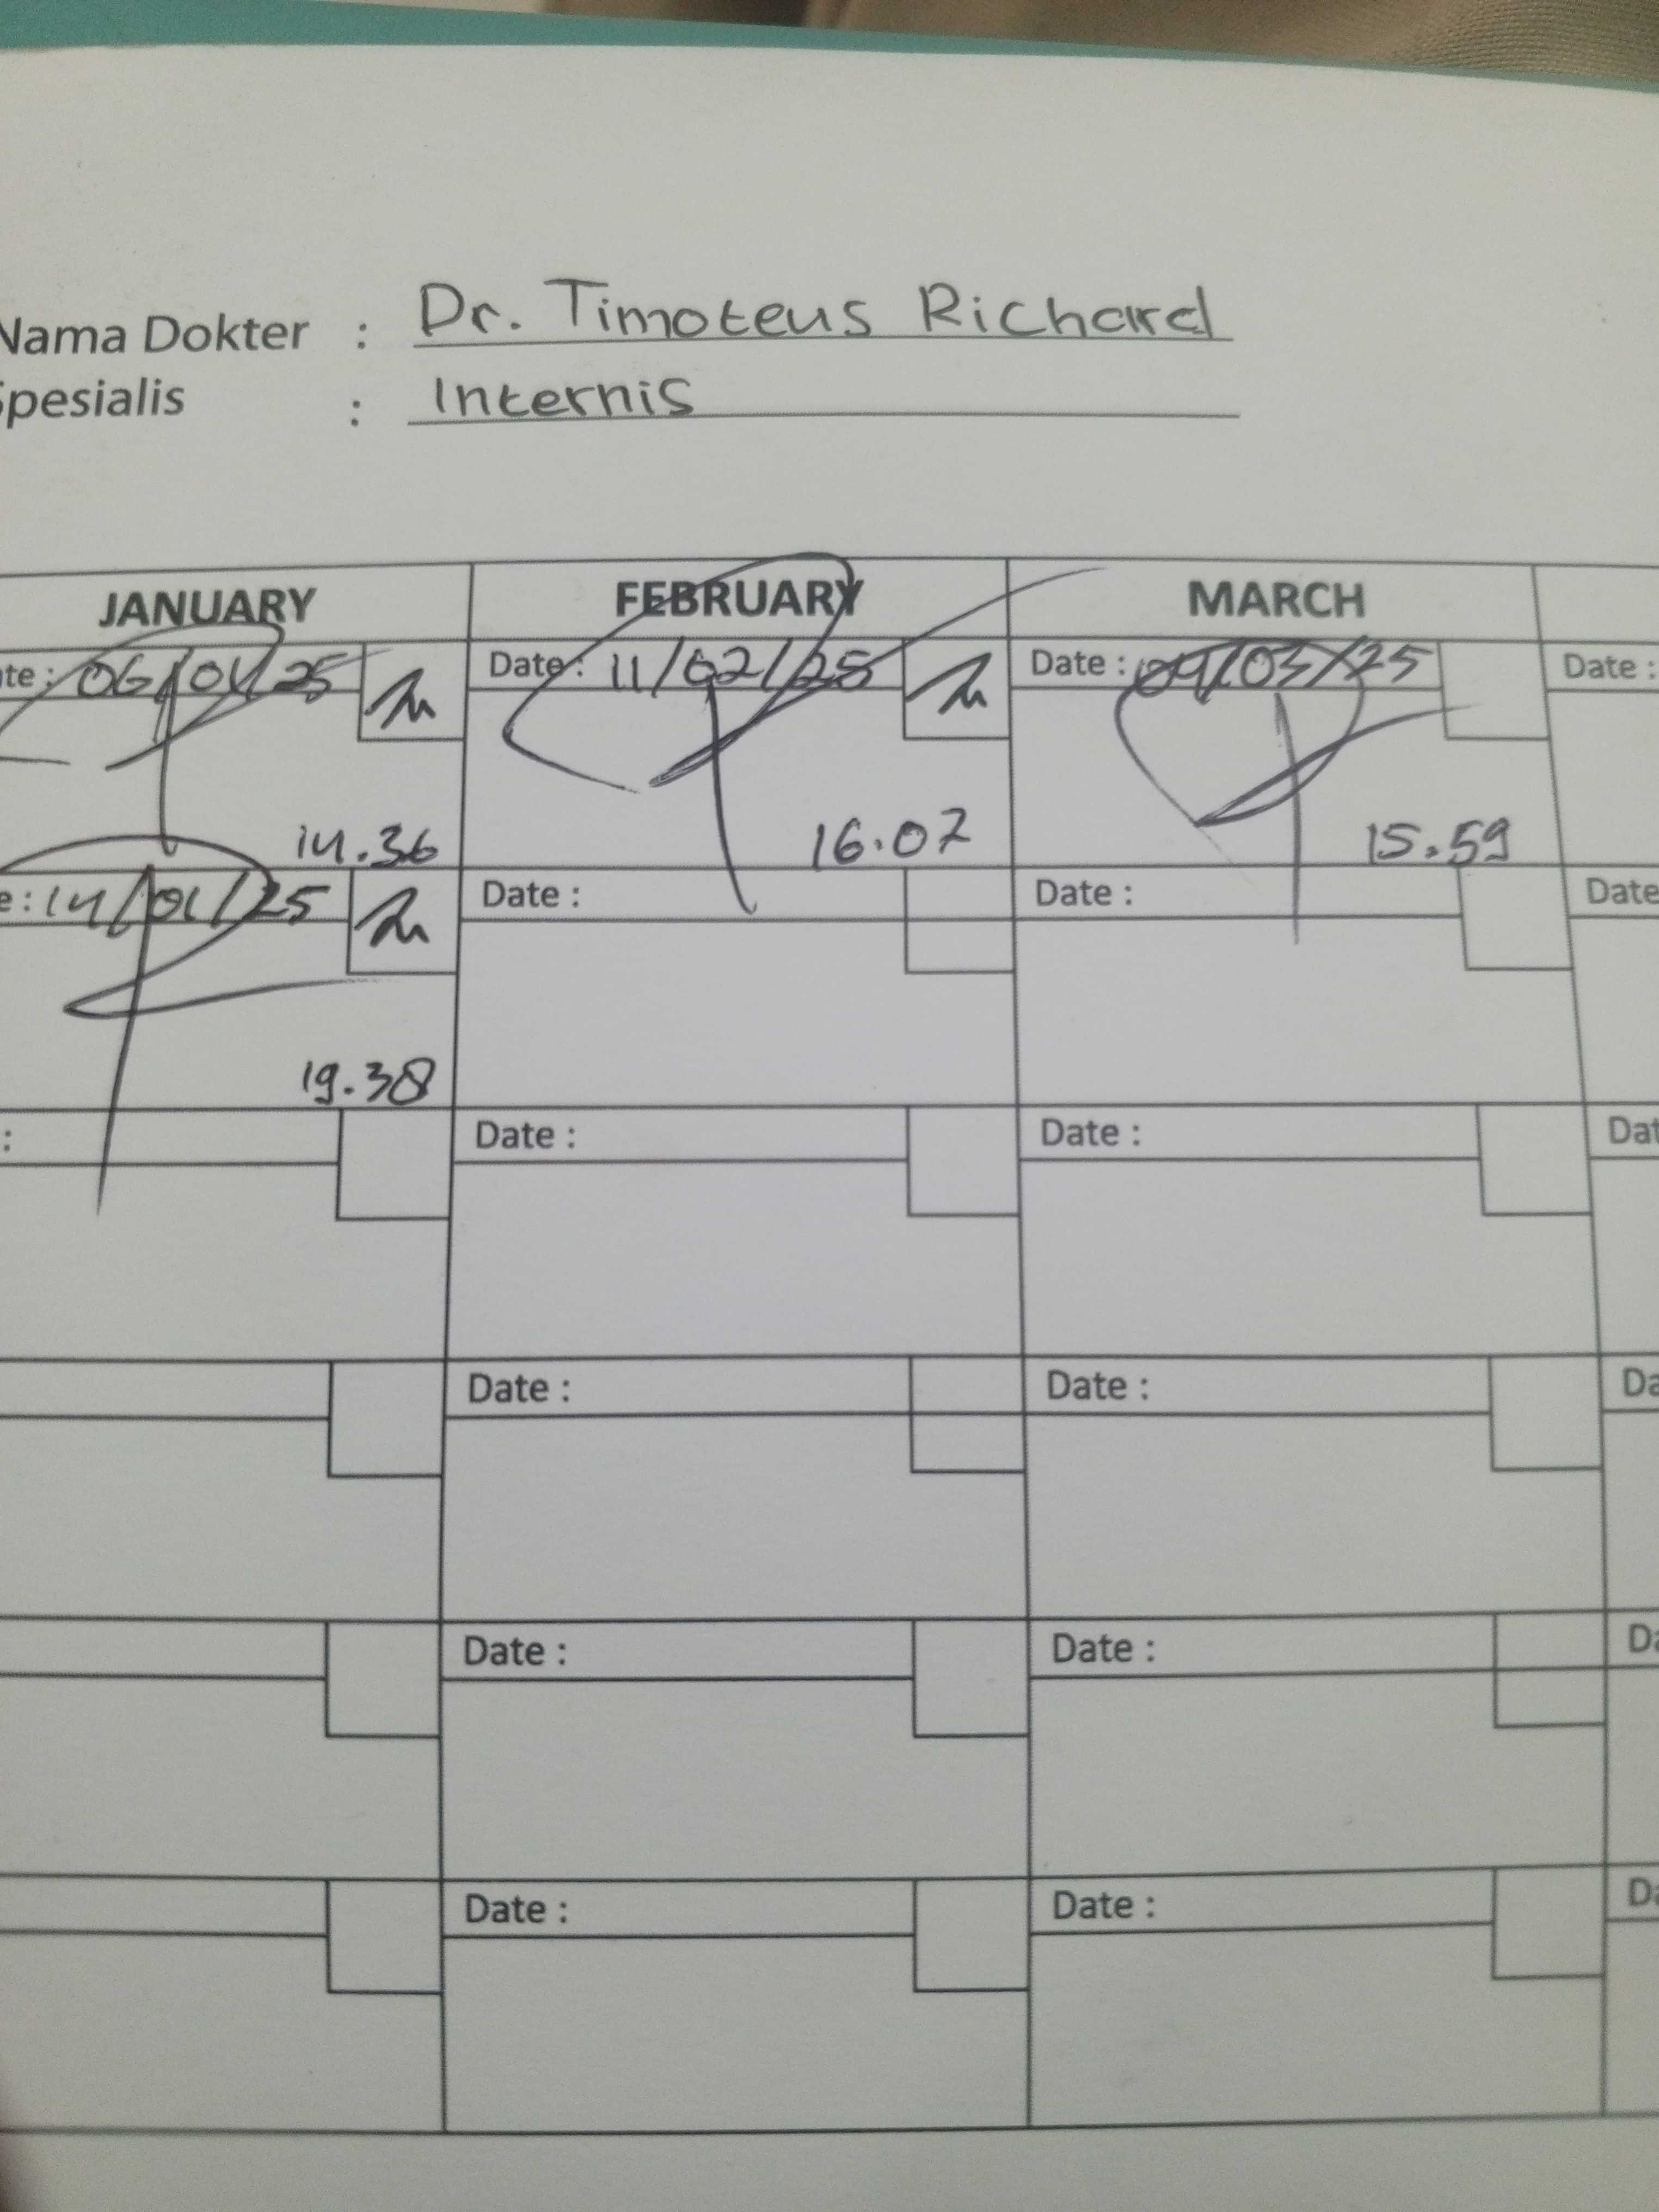 Nama Dokter : Dr. Timoteus Richard
Spesialis : Internis
JANUARY FEBRUARY MARCH
Date : 06/01/25 Date : 11/02/25 Date : 04/03/25 Date :
14.36 16.07 15.59
e : 14/01/25 Date : Date : Date
19.38
: Date : Date : Dat
Date : Date : Da
Date : Date : Da
Date : Date : Da